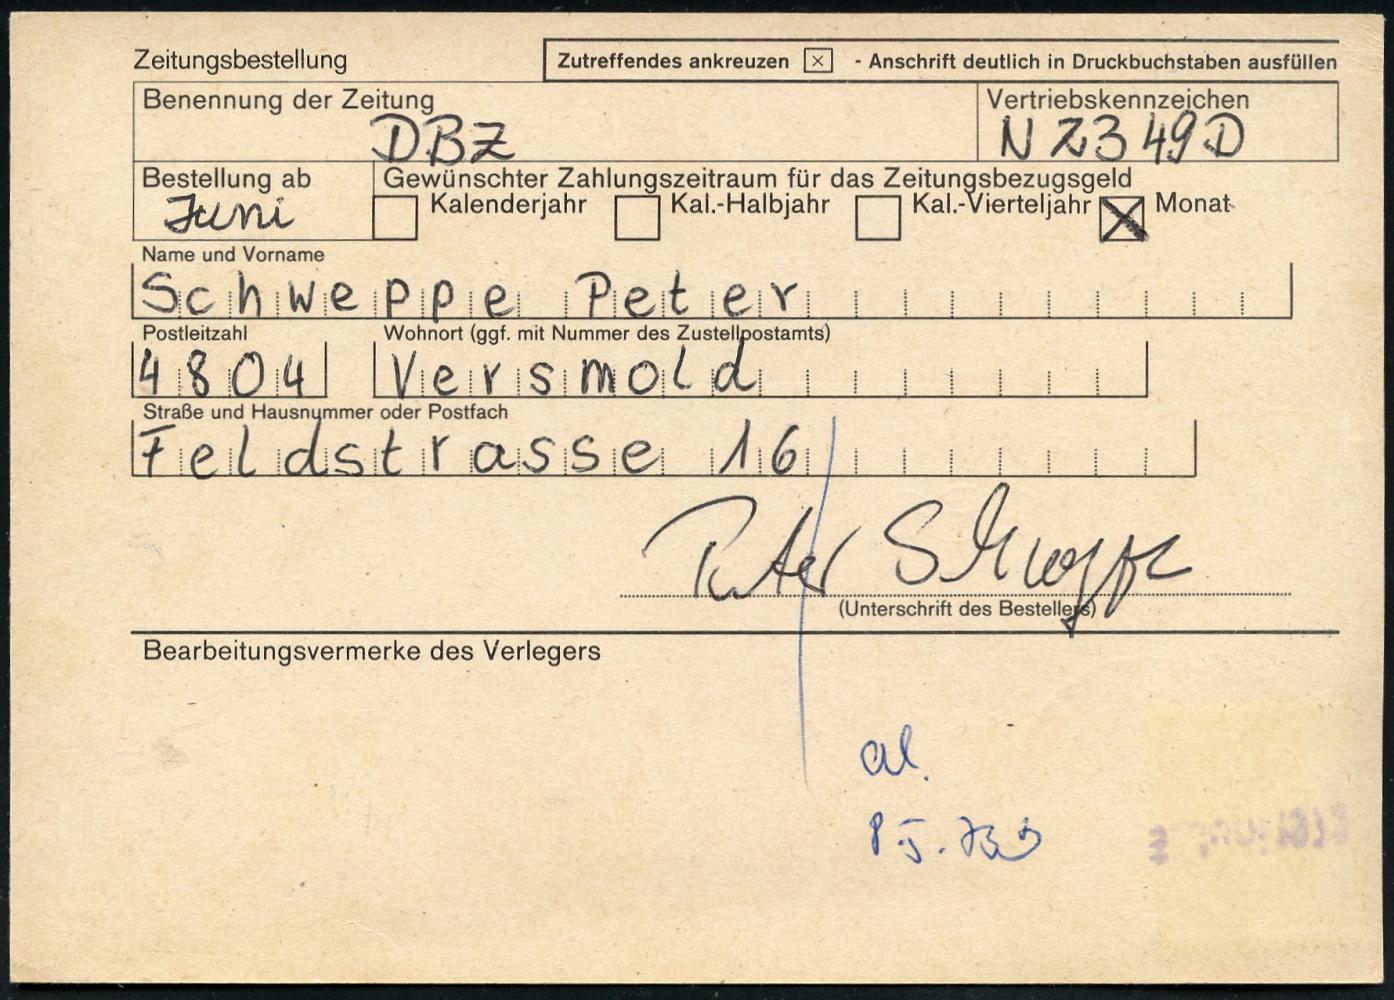 Zeitungsbestellung
Zutreffendes ankreuzen ☒ - Anschrift deutlich in Druckbuchstaben ausfüllen
Benennung der Zeitung
DBZ
Vertriebskennzeichen
N 2349D
Bestellung ab
Juni
Gewünschter Zahlungszeitraum für das Zeitungsbezugsgeld
☐ Kalenderjahr ☐ Kal.-Halbjahr ☐ Kal.-Vierteljahr ☒ Monat
Name und Vorname
Schweppe Peter
Postleitzahl
4804
Wohnort (ggf. mit Nummer des Zustellpostamts)
Versmold
Straße und Hausnummer oder Postfach
Feldstrasse 16
Peter Schweppe
(Unterschrift des Bestellers)
Bearbeitungsvermerke des Verlegers
al.